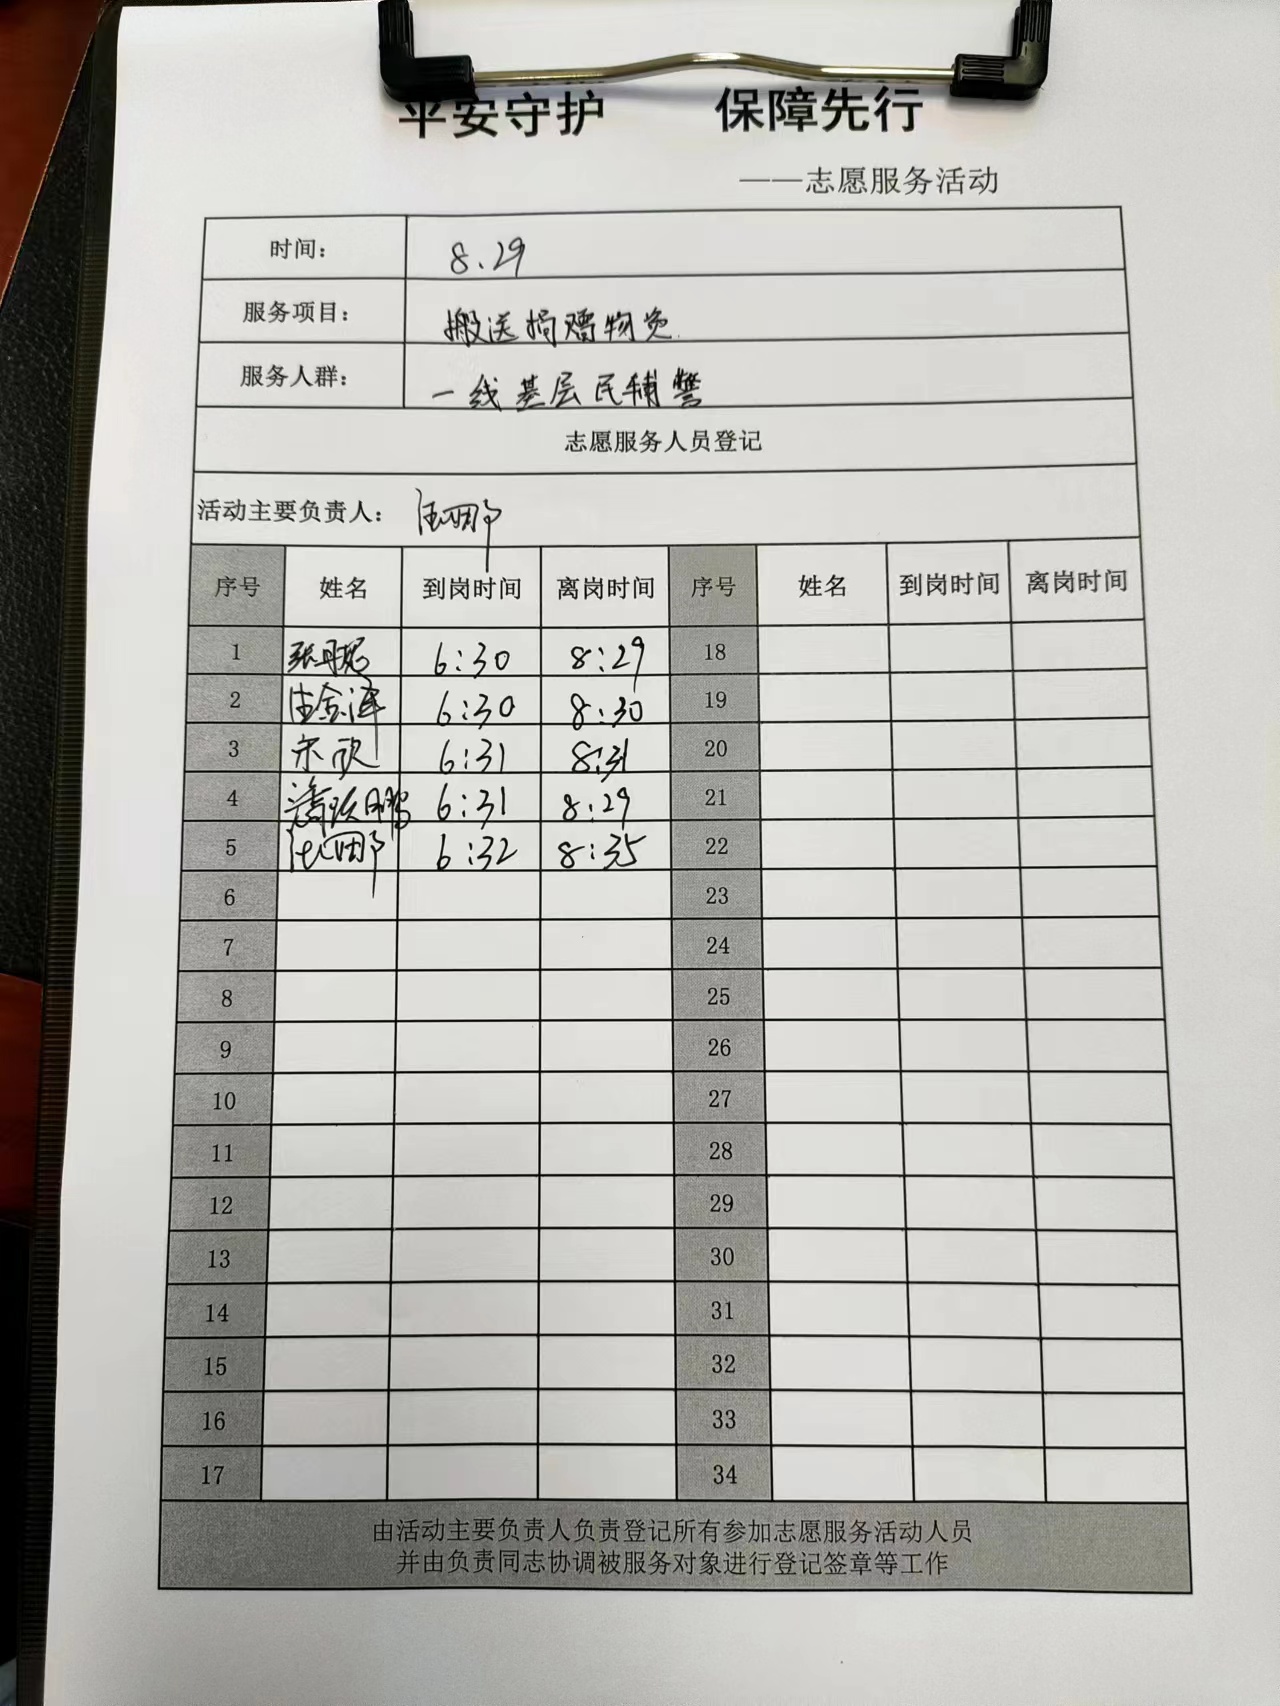 平安守护 保障先行
——志愿服务活动
时间： 8.29
服务项目： 搬送捐赠物资
服务人群： 一线基层民辅警
志愿服务人员登记
活动主要负责人：
序号 姓名 到岗时间 离岗时间 序号 姓名 到岗时间 离岗时间
1 6:30 8:29 18
2 6:30 8:30 19
3 宋欣 6:31 8:31 20
4 6:31 8:29 21
5 6:32 8:35 22
6 23
7 24
8 25
9 26
10 27
11 28
12 29
13 30
14 31
15 32
16 33
17 34
由活动主要负责人负责登记所有参加志愿服务活动人员
并由负责同志协调被服务对象进行登记签章等工作